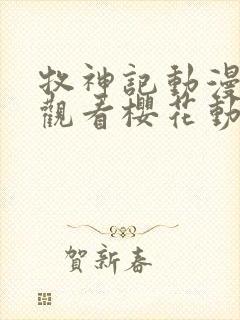 牧神記動漫
觀看櫻花動
賀新春